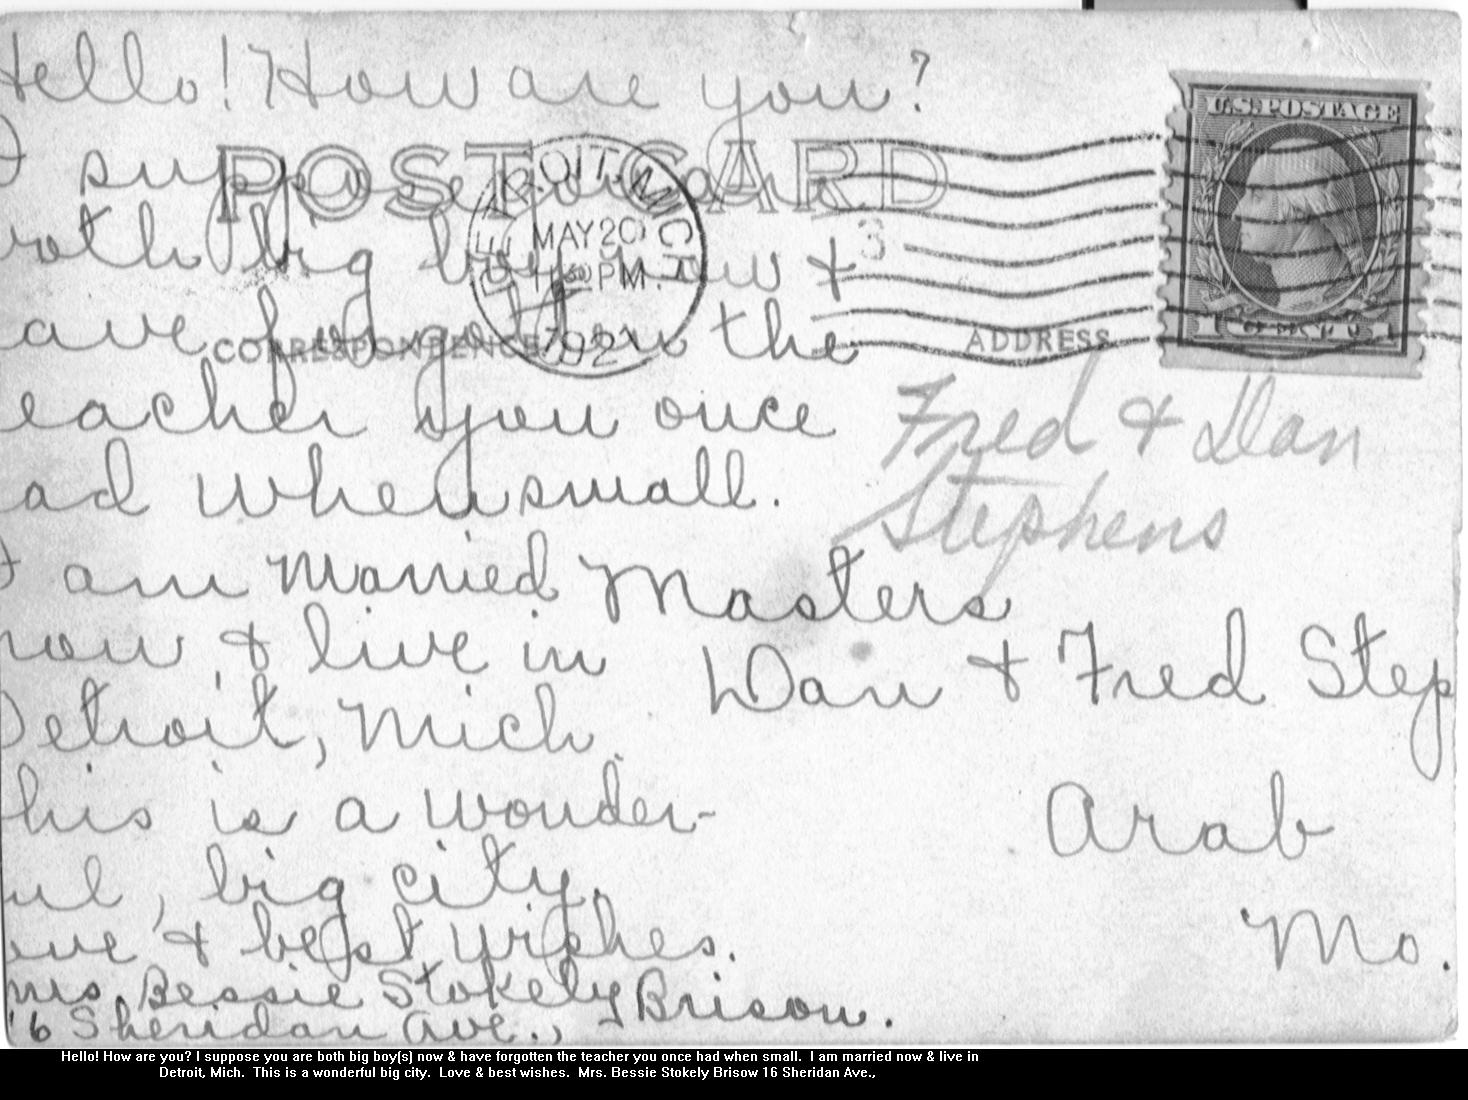 Hello! How are you?
I suppose you are
both big boys now &
have forgotten the
teacher you once
had when small.
I am married
now & live in
Detroit, Mich.
This is a wonder-
ful, big city.
Love & best wishes.
Mrs. Bessie Stokely Brison.
16 Sheridan Ave.,
POST CARD
CORRESPONDENCE
ADDRESS
DETROIT, MICH.
MAY 20
11 30 PM.
192
3
U.S. POSTAGE
1 CENT 1
Fred & Dan
Stephens
Masters
Dan & Fred Step
Arab
Mo.
Hello! How are you? I suppose you are both big boy(s) now & have forgotten the teacher you once had when small. I am married now & live in
Detroit, Mich. This is a wonderful big city. Love & best wishes. Mrs. Bessie Stokely Brisow 16 Sheridan Ave.,